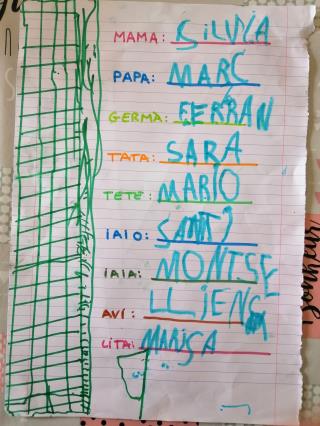 MAMA: SILVIA
PAPA: MARC
GERMÀ: FERRAN
TATA: SARA
TETE: MARIO
IAIO: SANTI
IAIA: MONTSE
AVI: LLIENS
LITA: MANISA